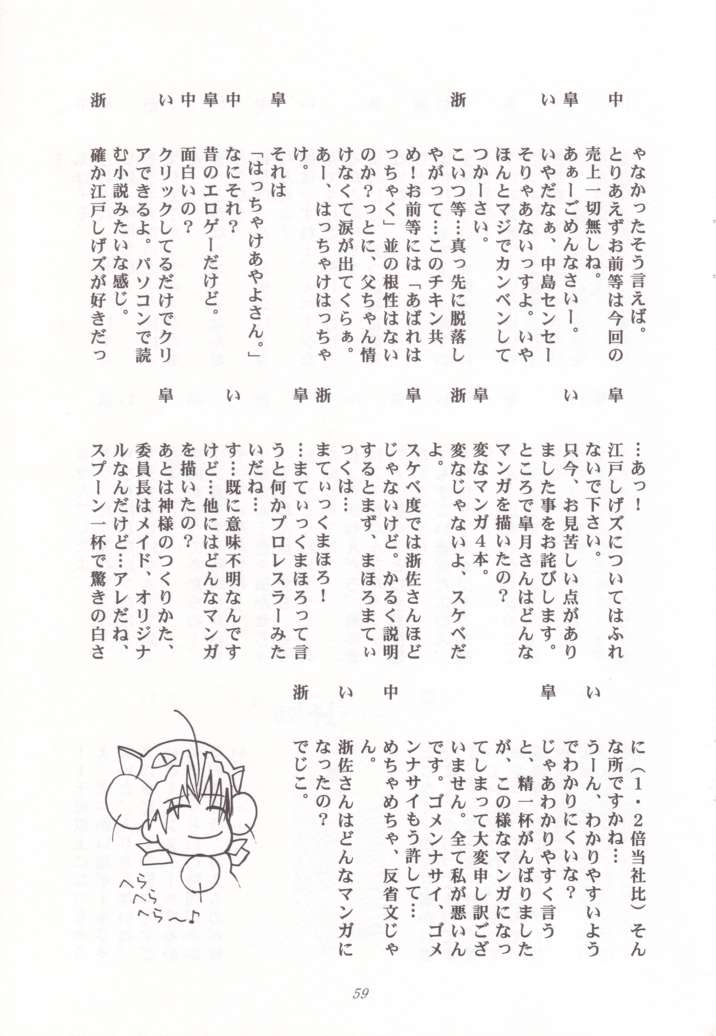 ゃなかったそう言えば。
中 とりあえずお前等は今回の
売上一切無しね。
皐 あぁーごめんなさいー。
い いやだなぁ、中島センセー
そりゃあないっすよ。いや
ほんとマジでカンベンして
つかーさい。
浙 こいつ等…真っ先に脱落し
やがって…このチキン共
め！お前等には「あばれは
っちゃく」並の根性はない
のか？っとに、父ちゃん情
けなくて涙が出てくらぁ。
あー、はっちゃけはっちゃ
け。
皐 それは
「はっちゃけあやよさん。」
中 なにそれ？
皐 昔のエロゲーだけど。
中 面白いの？
い クリックしてるだけでクリ
アできるよ。パソコンで読
む小説みたいな感じ。
浙 確か江戸しげズが好きだっ
…あっ！
皐 江戸しげズについてはふれ
ないで下さい。
い 只今、お見苦しい点があり
ました事をお詫びします。
ところで皐月さんはどんな
マンガを描いたの？
皐 変なマンガ４本。
浙 変なじゃないよ、スケベだ
よ。
皐 スケベ度では浙佐さんほど
じゃないけど。かるく説明
するとまず、まほろまてぃ
っくは…
浙 まてぃっくまほろ！
皐 …まてぃっくまほろって言
うと何かプロレスラーみた
いだね…
い す…既に意味不明なんです
けど…他にはどんなマンガ
を描いたの？
皐 あとは神様のつくりかた、
委員長はメイド、オリジナ
ルなんだけど…アレだね、
スプーン一杯で驚きの白さ
に（１・２倍当社比）そん
な所ですかね…
い うーん、わかりやすいよう
でわかりにくいな？
皐 じゃあわかりやすく言う
と、精一杯がんばりました
が、この様なマンガになっ
てしまって大変申し訳ござ
いません。全て私が悪いん
です。ゴメンナサイ、ゴメ
ンナサイもう許して…
中 めちゃめちゃ、反省文じゃ
ん。
い 浙佐さんはどんなマンガに
なったの？
浙 でじこ。
へら
へら
へら～♪
59